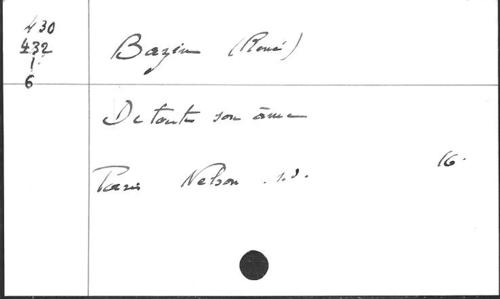 430
432
1
6
Bazin (René)
De toute son âme
Paris Nelson s.d.
16.